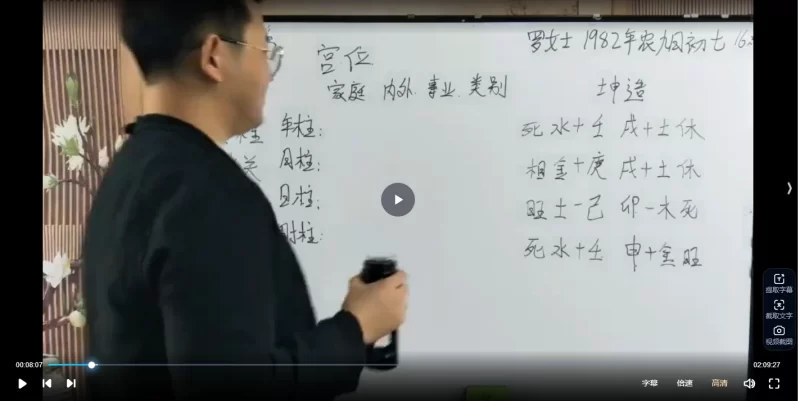 宫位
罗女士 1982年农九月初七 16
家庭 内外. 事业. 类别
坤造
年柱:
月柱:
日柱:
时柱:
死水+壬 戌+土休
相金+庚 戌+土休
旺土-己 卯-木死
死水+壬 申+金旺
提取字幕
截取文字
视频截图
00:08:07
02:09:27
字幕
倍速
高清